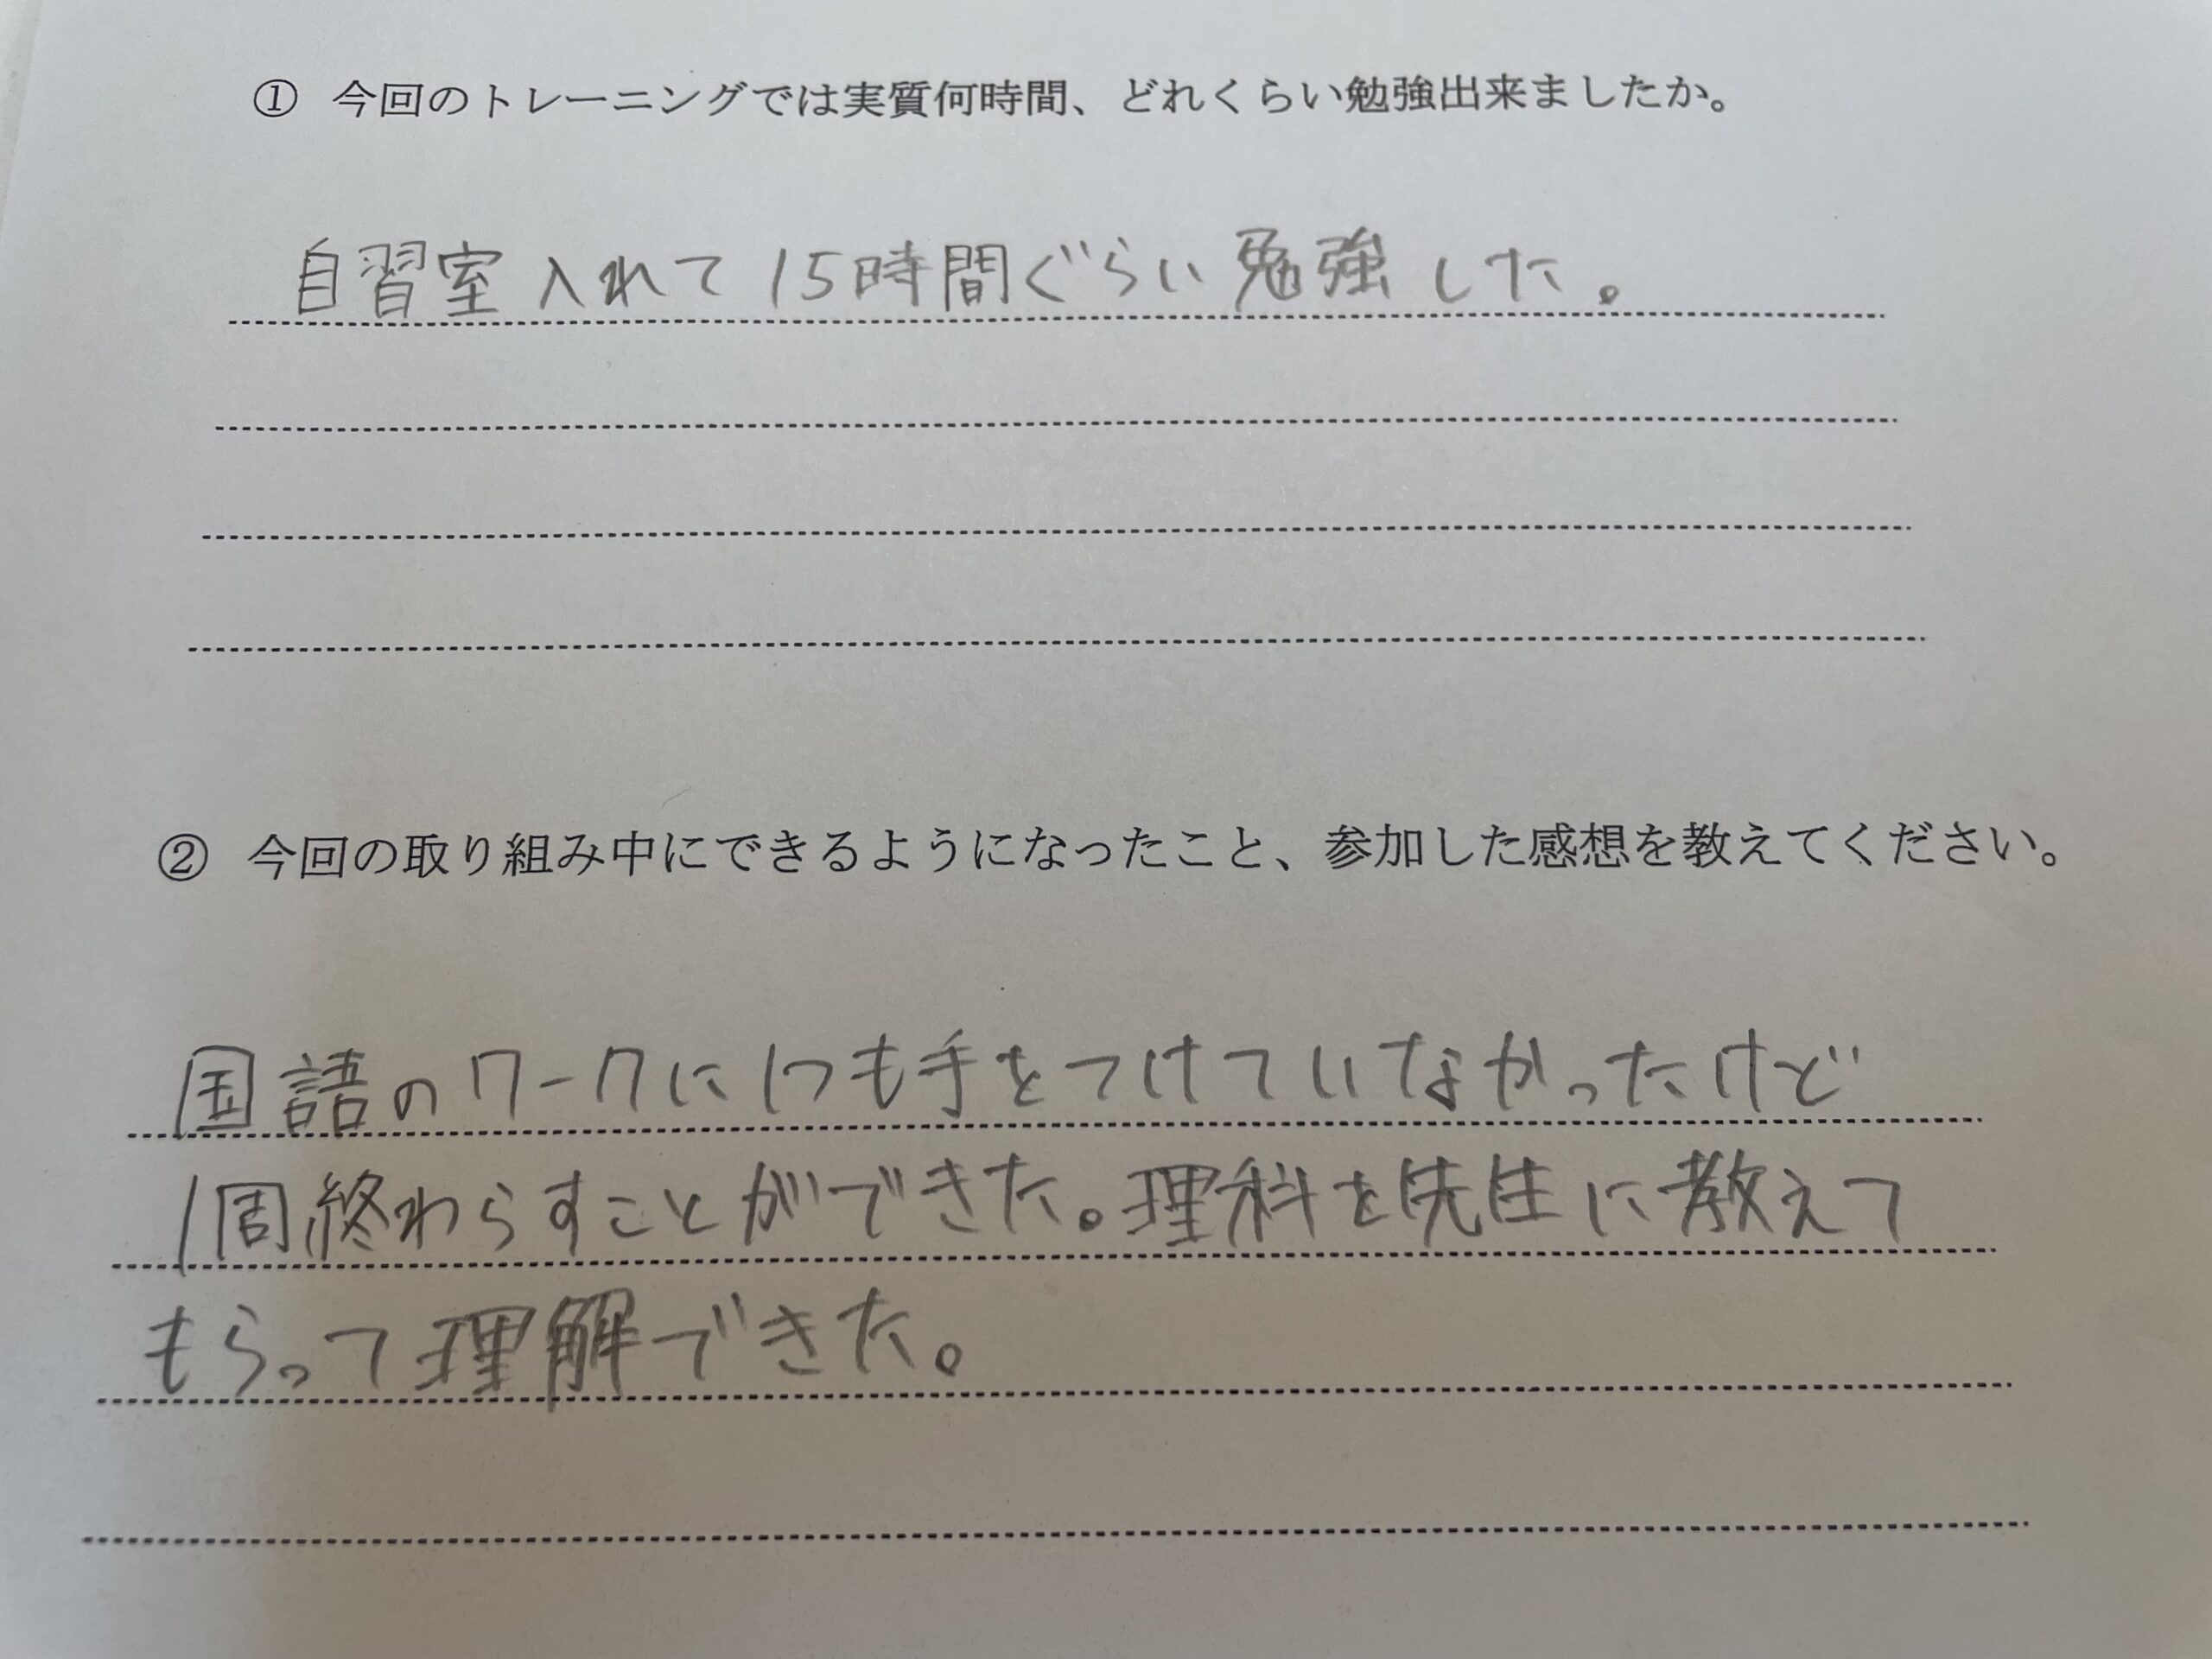 ① 今回のトレーニングでは実質何時間、どれくらい勉強出来ましたか。
自習室入れて15時間ぐらい勉強した。
② 今回の取り組み中にできるようになったこと、参加した感想を教えてください。
国語のワークにいつも手をつけていなかったけど
1周終わらすことができた。理科を先生に教えて
もらって理解できた。